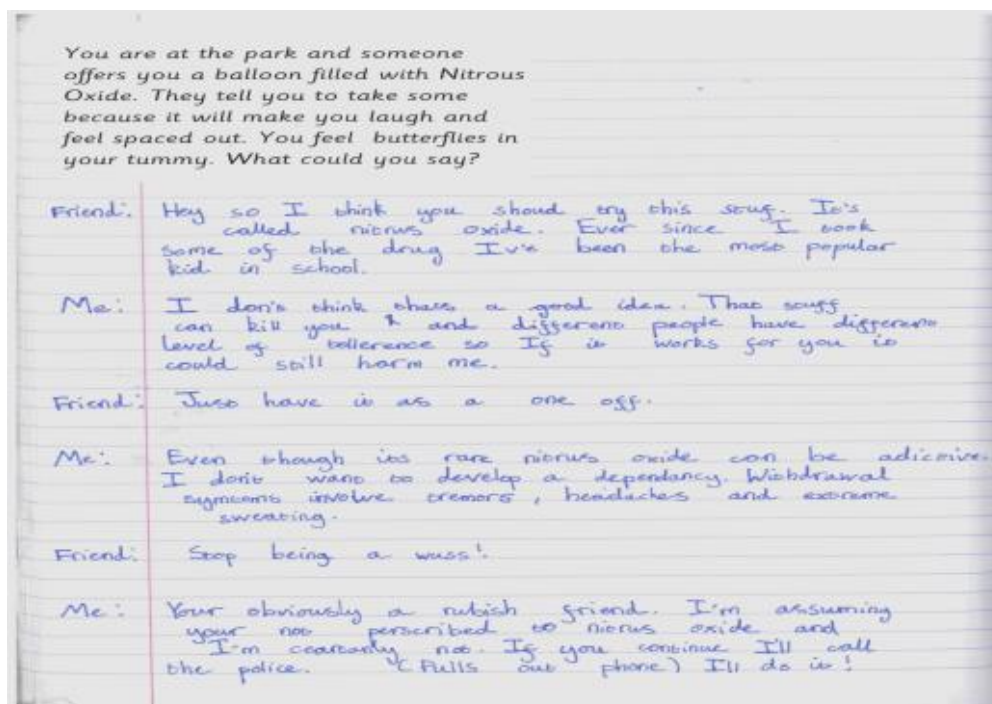 You are at the park and someone
offers you a balloon filled with Nitrous
Oxide. They tell you to take some
because it will make you laugh and
feel spaced out. You feel butterflies in
your tummy. What could you say?
Friend: Hey so I think you shoud try this stuf. It's
called nitrus oxide. Ever since I took
some of the drug Iv'e been the most popular
kid in school.
Me: I don't think thats a good idea. That stuff
can kill you and different people have different
level of tellerence so If it works for you it
could still harm me.
Friend: Just have it as a one off.
Me: Even though its rare nitrus oxide can be adictive.
I dont want to develop a dependancy. Withdrawal
symtoms involve tremors, headaches and extreme
sweating.
Friend: Stop being a wuss!
Me: Your obviously a rubish friend. I'm assuming
your not perscribed to nitrus oxide and
I'm ceartanly not. If you continue I'll call
the police. (Pulls out phone) I'll do it!